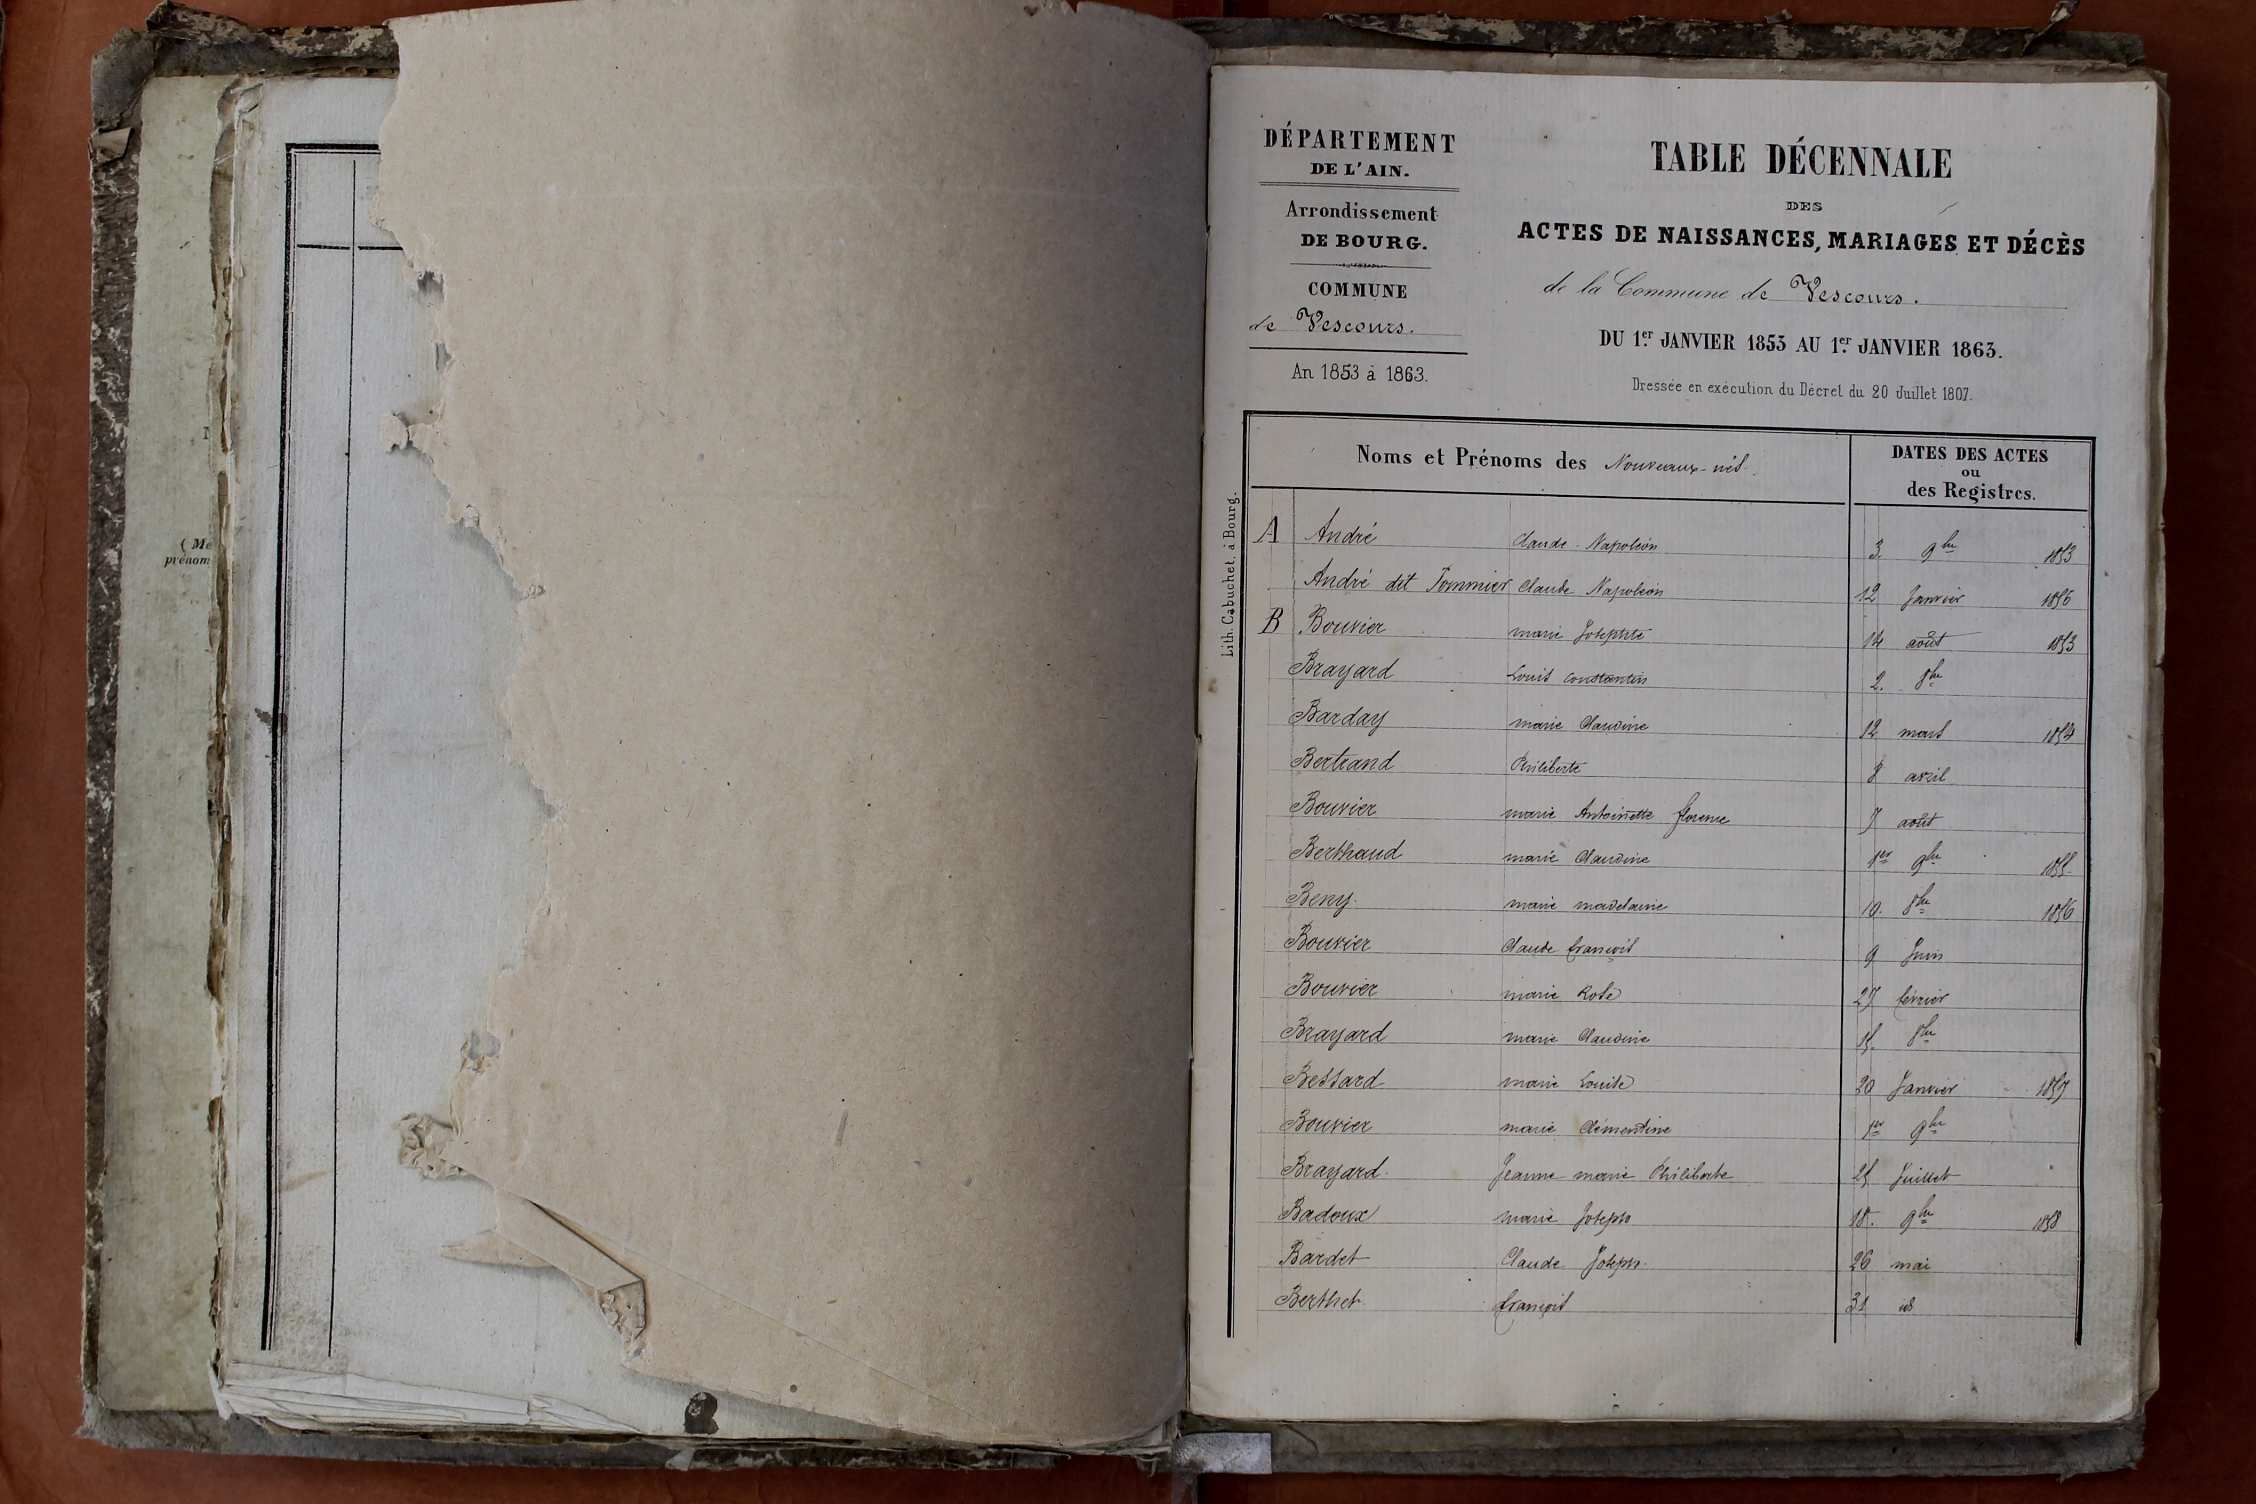 ( Me
prénom
DÉPARTEMENT
DE L'AIN.
Arrondissement
DE BOURG.
COMMUNE
de Vescours.
An 1853 à 1863.
TABLE DÉCENNALE
DES
ACTES DE NAISSANCES, MARIAGES ET DÉCÈS
de la Commune de Vescours.
DU 1er JANVIER 1853 AU 1er JANVIER 1863.
Dressée en exécution du Décret du 20 Juillet 1807.
Lith. Cabuchet, à Bourg.
Noms et Prénoms des Nouveaux-nés. DATES DES ACTES
ou
des Registres.
A André Claude Napoléon 3. 9bre 1853
André dit Pommier Claude Napoléon 12 Janvier 1856
B Bouvier marie Josephte 14 août 1853
Brayard Louis Constantin 2. 8bre
Barday marie Claudine 12 mars 1854
Bertrand Philiberte 8 avril
Bouvier marie Antoinette florence 7 août
Berthaud marie Claudine 1er 9bre 1855
Beny. marie madelaine 10. 8bre 1856
Bouvier Claude françois 9 Juin
Bouvier marie Rose 27 février
Brayard marie Claudine 15. 8bre
Bessard marie Louise 20 Janvier 1857
Bouvier marie Clémentine 1er 9bre
Brayard. Jeanne marie Philiberte 25 Juillet
Badoux marie Joseph 18. 9bre 1858
Bardet Claude Joseph. 26 mai
Berthet françois 31 id